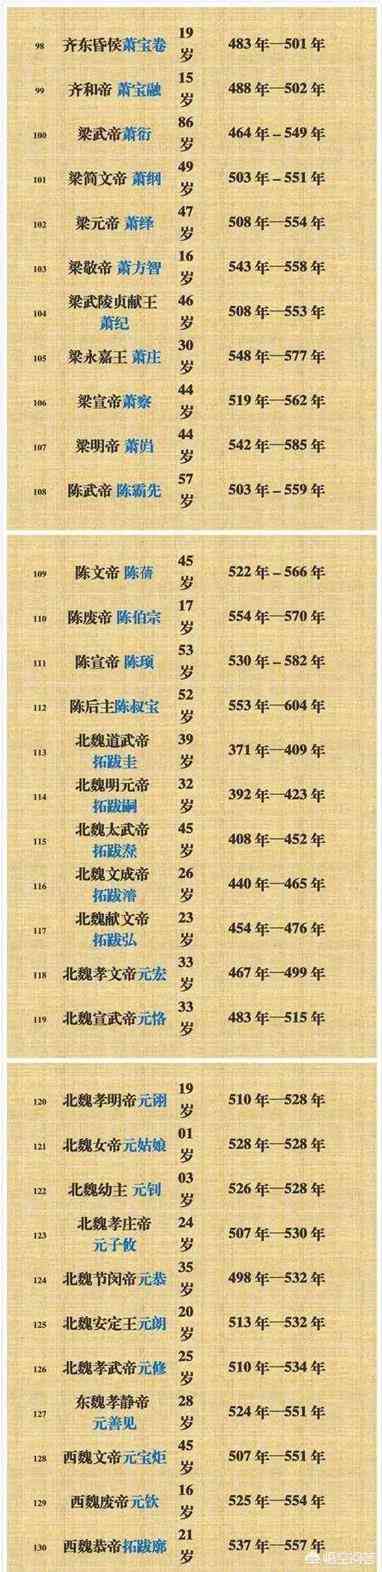 98 齐东昏侯萧宝卷 19岁 483年—501年
99 齐和帝 萧宝融 15岁 488年—502年
100 梁武帝萧衍 86岁 464年–549年
101 梁简文帝 萧纲 49岁 503年–551年
102 梁元帝 萧绎 47岁 508年—554年
103 梁敬帝 萧方智 16岁 543年—558年
104 梁武陵贞献王 萧纪 46岁 508年—553年
105 梁永嘉王 萧庄 30岁 548年—577年
106 梁宣帝萧察 44岁 519年—562年
107 梁明帝 萧岿 44岁 542年—585年
108 陈武帝 陈霸先 57岁 503年–559年
109 陈文帝 陈蒨 45岁 522年–566年
110 陈废帝 陈伯宗 17岁 554年—570年
111 陈宣帝 陈顼 53岁 530年–582年
112 陈后主陈叔宝 52岁 553年—604年
113 北魏道武帝 拓跋圭 39岁 371年—409年
114 北魏明元帝 拓跋嗣 32岁 392年—423年
115 北魏太武帝 拓跋焘 45岁 408年—452年
116 北魏文成帝 拓跋濬 26岁 440年—465年
117 北魏献文帝 拓跋弘 23岁 454年—476年
118 北魏孝文帝元宏 33岁 467年—499年
119 北魏宣武帝元恪 33岁 483年—515年
120 北魏孝明帝元诩 19岁 510年—528年
121 北魏女帝元姑娘 01岁 528年—528年
122 北魏幼主 元钊 03岁 526年—528年
123 北魏孝庄帝 元子攸 24岁 507年—530年
124 北魏节闵帝元恭 35岁 498年—532年
125 北魏安定王元朗 20岁 513年—532年
126 北魏孝武帝元修 25岁 510年—534年
127 东魏孝静帝 元善见 28岁 524年—551年
128 西魏文帝元宝炬 45岁 507年—551年
129 西魏废帝元钦 16岁 525年—554年
130 西魏恭帝拓跋廓 21岁 537年—557年
悟空问答